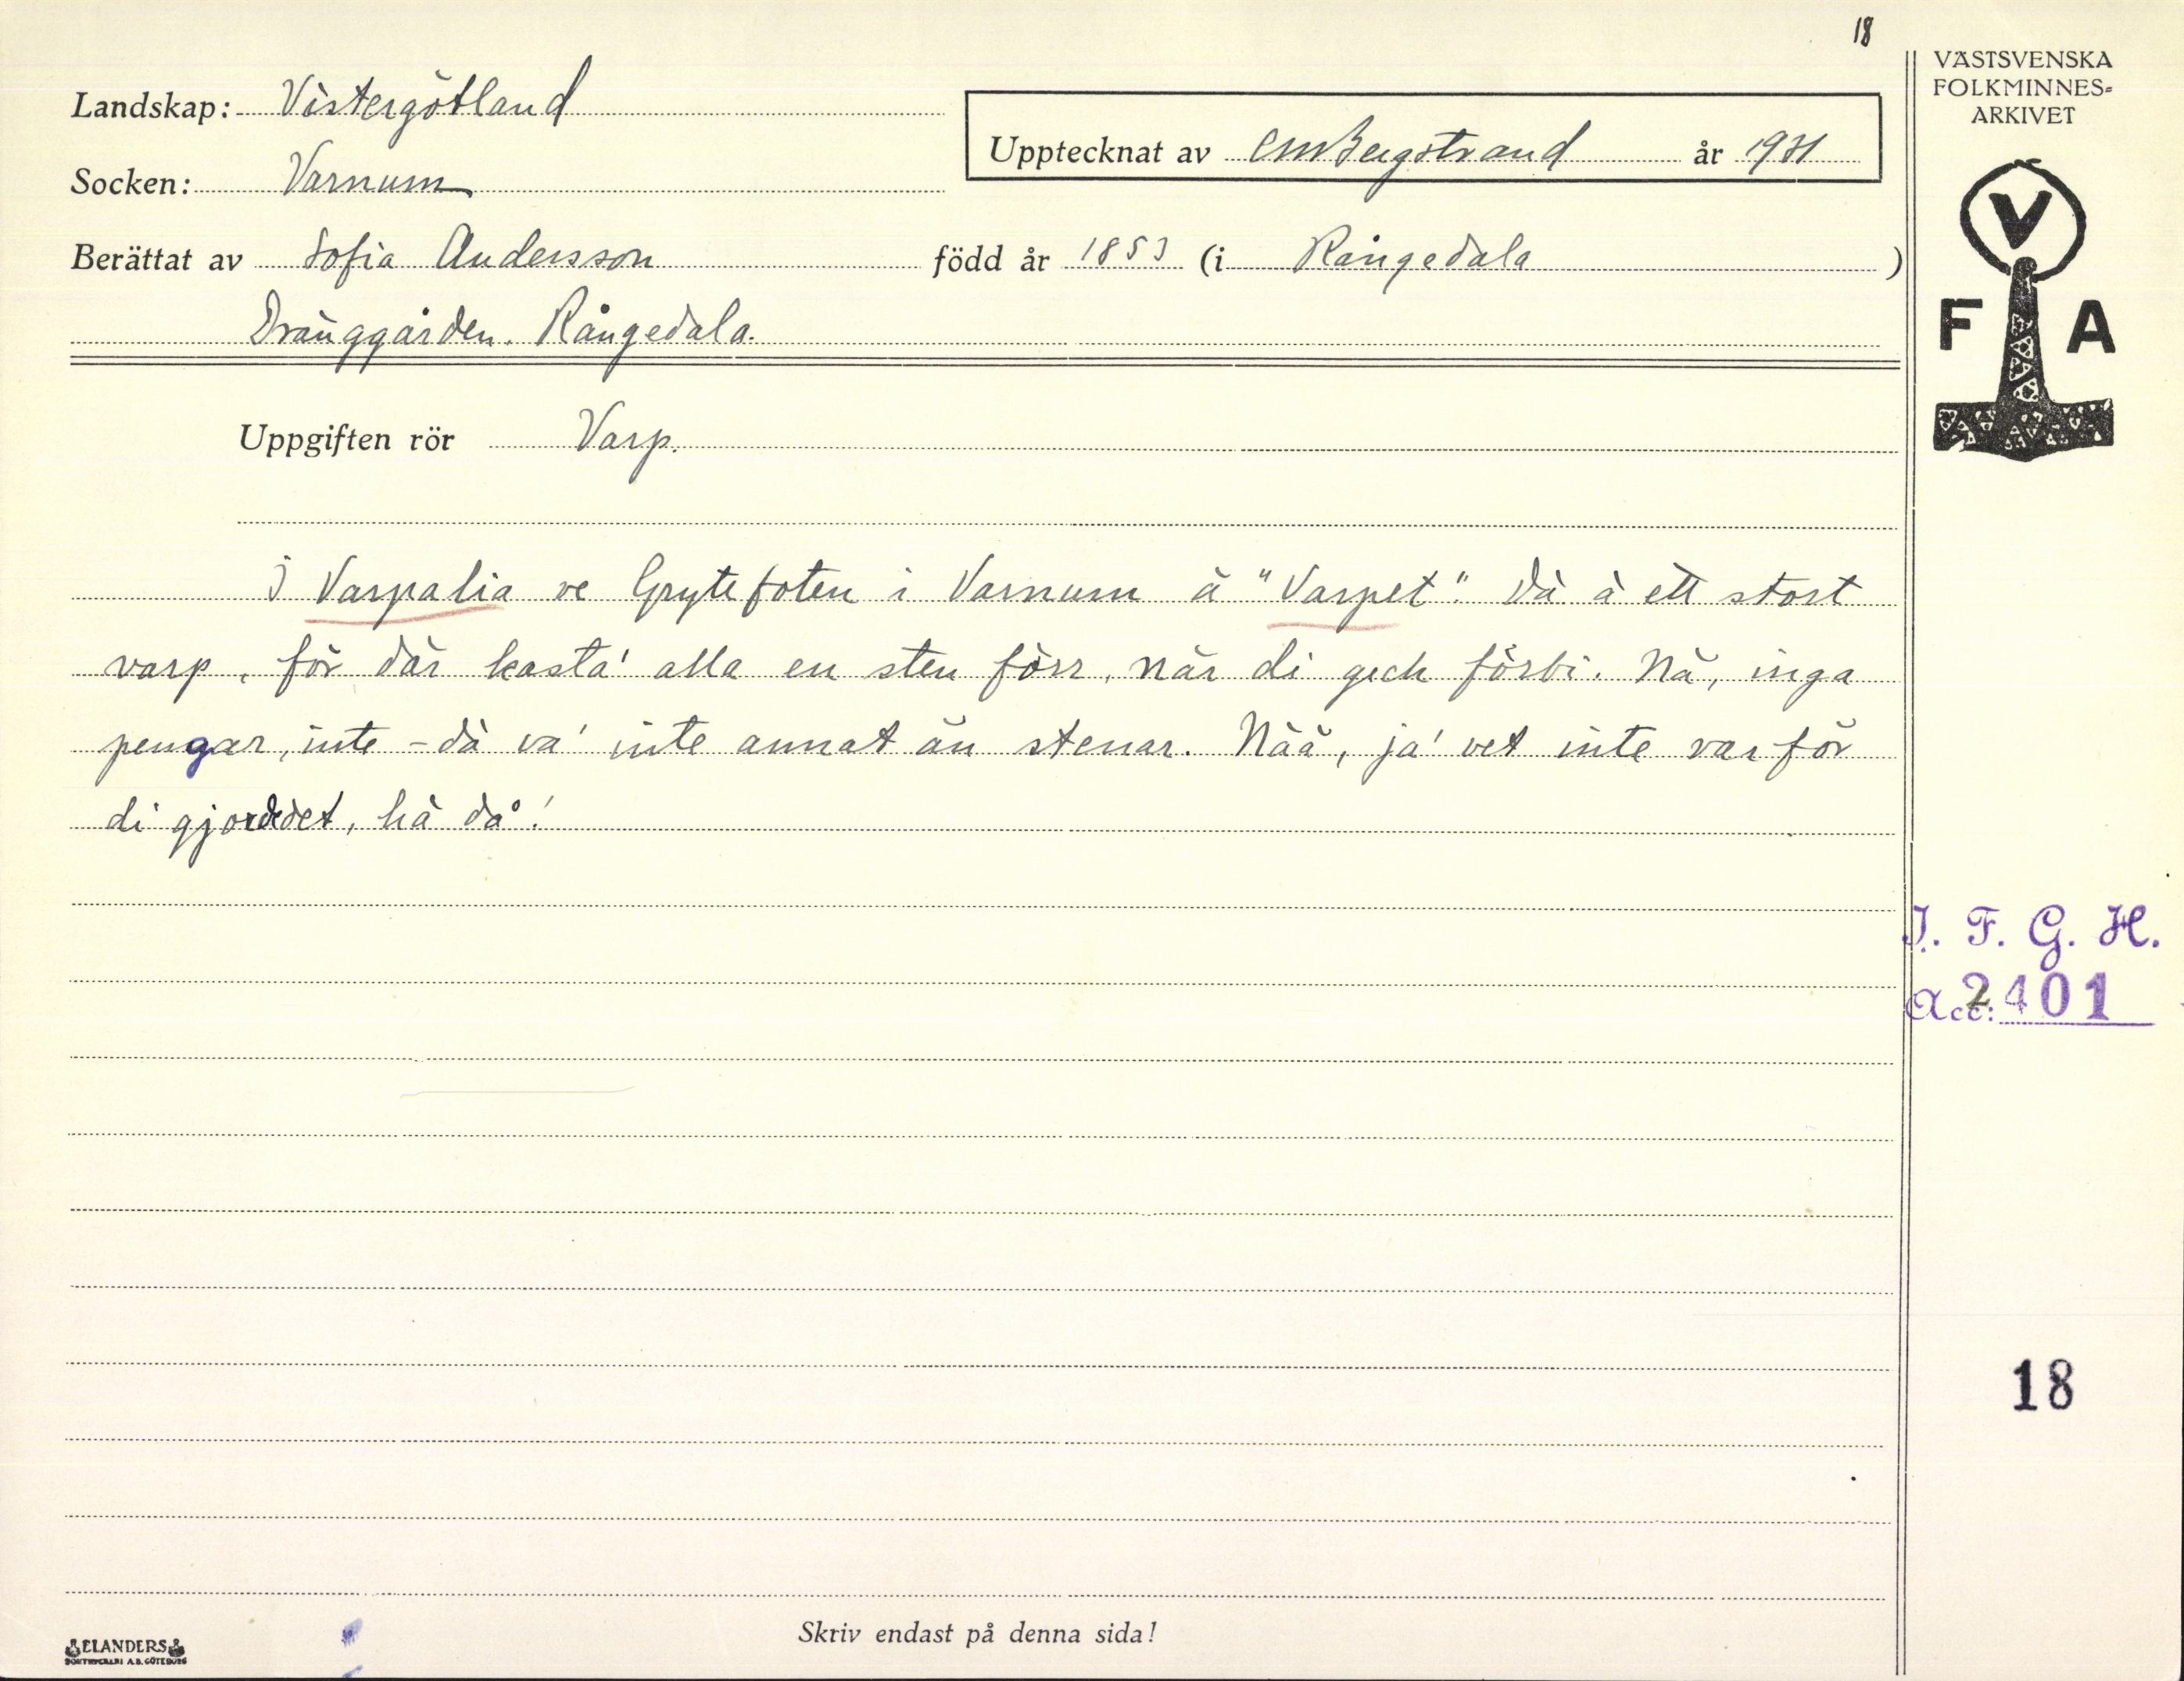 18
VÄSTSVENSKA
FOLKMINNES-
ARKIVET
Landskap: Västergötland
Upptecknat av CMBergstrand år 1931
Socken: Varnum
Berättat av Sofia Andersson född år 1853 (i Rångedala)
Dränggården. Rångedala.
V
F A
Uppgiften rör Varp.
I Varpalia ve Grytefoten i Varnum ä "Varpet". Dä ä ett stort
varp, för där kasta' alla en sten förr, när di gech förbi. Nä, inga
pengar, inte - dä va' inte annat än stenar. Nää, ja' vet inte varför
di gjordedet, hä då!
I. F. G. H.
Acc: 2401
18
ELANDERS
BOKTRYCKERI A.B. GÖTEBORG
Skriv endast på denna sida!